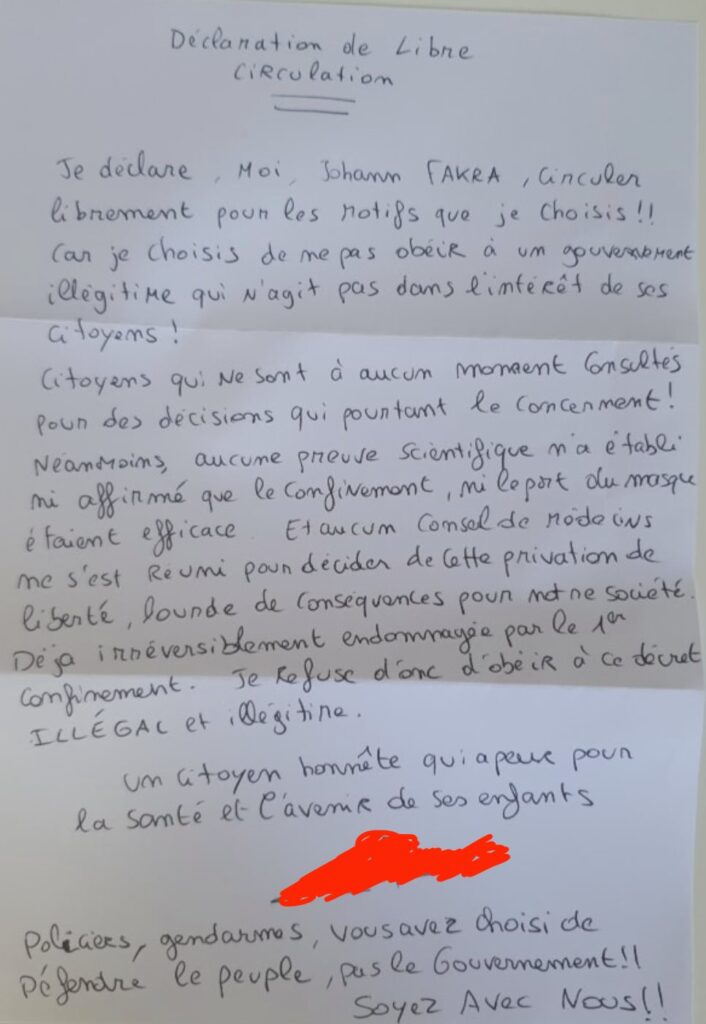 Déclaration de Libre
Circulation
Je déclare, Moi, Johann FAKRA, Circuler
librement pour les motifs que je choisis!!
Car je choisis de ne pas obéir à un gouvernement
illégitime qui n'agit pas dans l'intérêt de ses
citoyens!
Citoyens qui ne sont à aucun moment Consultés
pour des décisions qui pourtant le concernent!
Néanmoins, aucune preuve scientifique n'a établi
ni affirmé que le confinement, ni le port du masque
étaient efficace. Et aucun Conseil de médecins
ne s'est réuni pour décider de cette privation de
liberté, lourde de conséquences pour notre société.
Déjà irréversiblement endommagée par le 1er
confinement. Je Refuse d'onc d'obéir à ce décret
ILLÉGAL et illégitime.
un citoyen honnête qui a peur pour
la santé et l'avenir de ses enfants
Policiers, gendarmes, vous avez choisi de
Défendre le peuple, pas le Gouvernement!!
Soyez Avec Nous!!